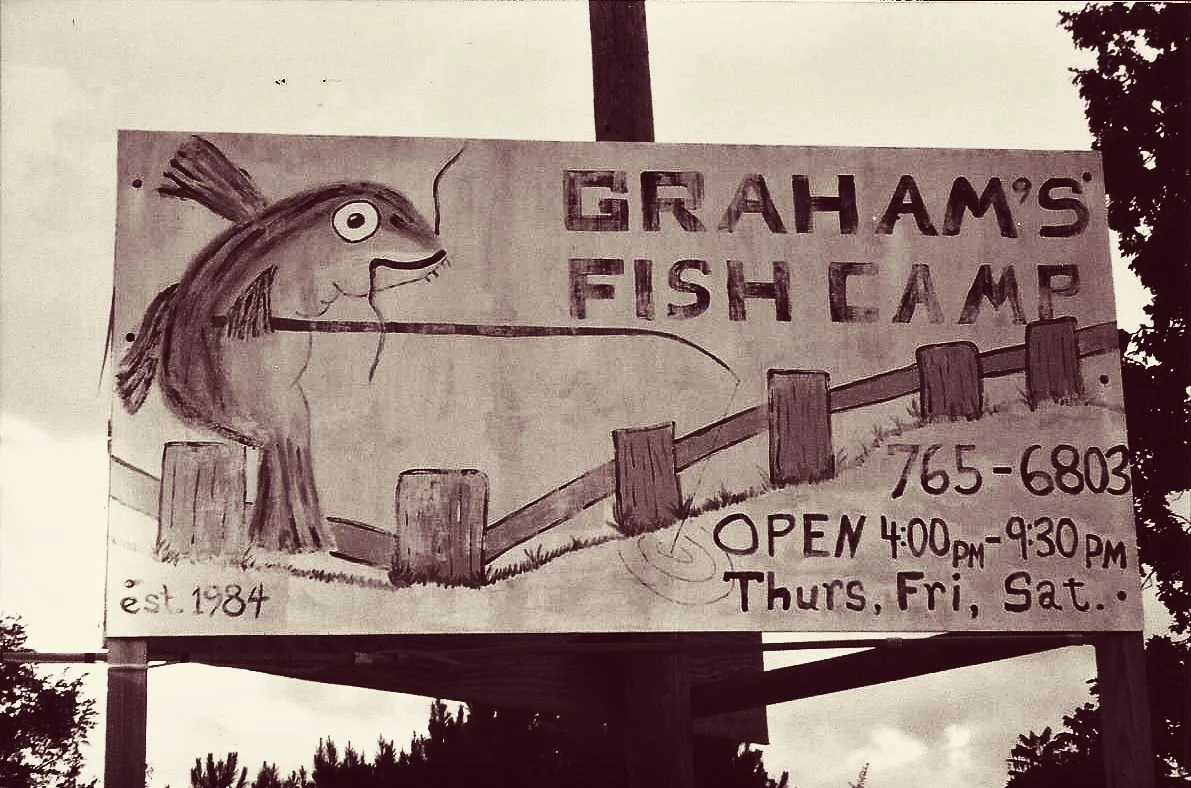 GRAHAM'S
FISH CAMP
765-6803
OPEN 4:00PM-9:30PM
Thurs, Fri, Sat.
est. 1984